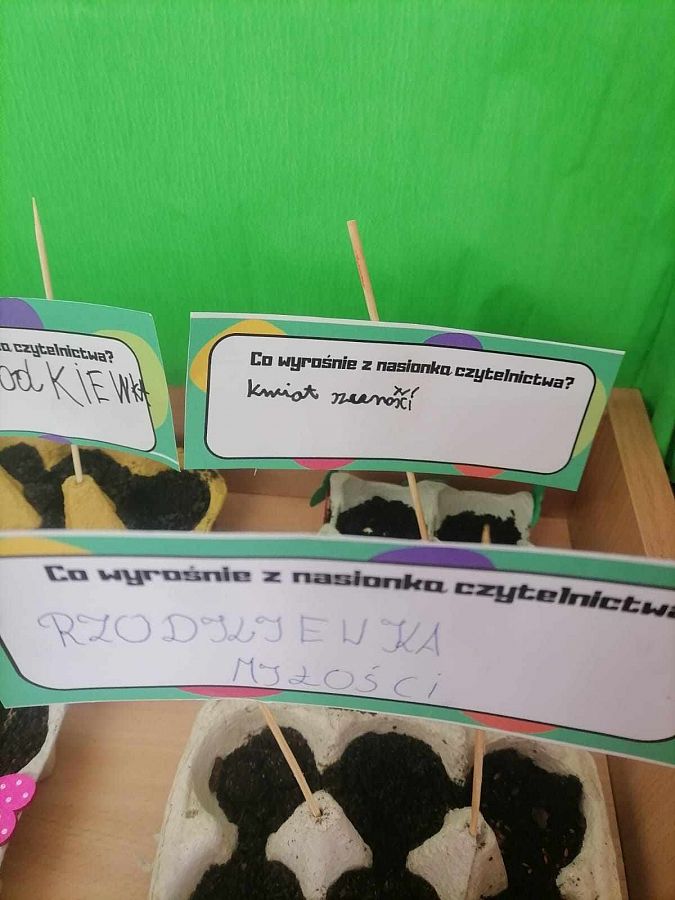 czytelnictwa?
odKIEWKA
Co wyrośnie z nasionka czytelnictwa?
kwiat
Co wyrośnie z nasionka czytelnictwa
RZODKIEWKA
MIŁOŚCi